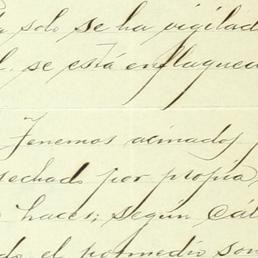 solo se ha vigilad
se está enflaquec
Tenemos acinados
sechado por propia
haces; según cál
do el pormedio son